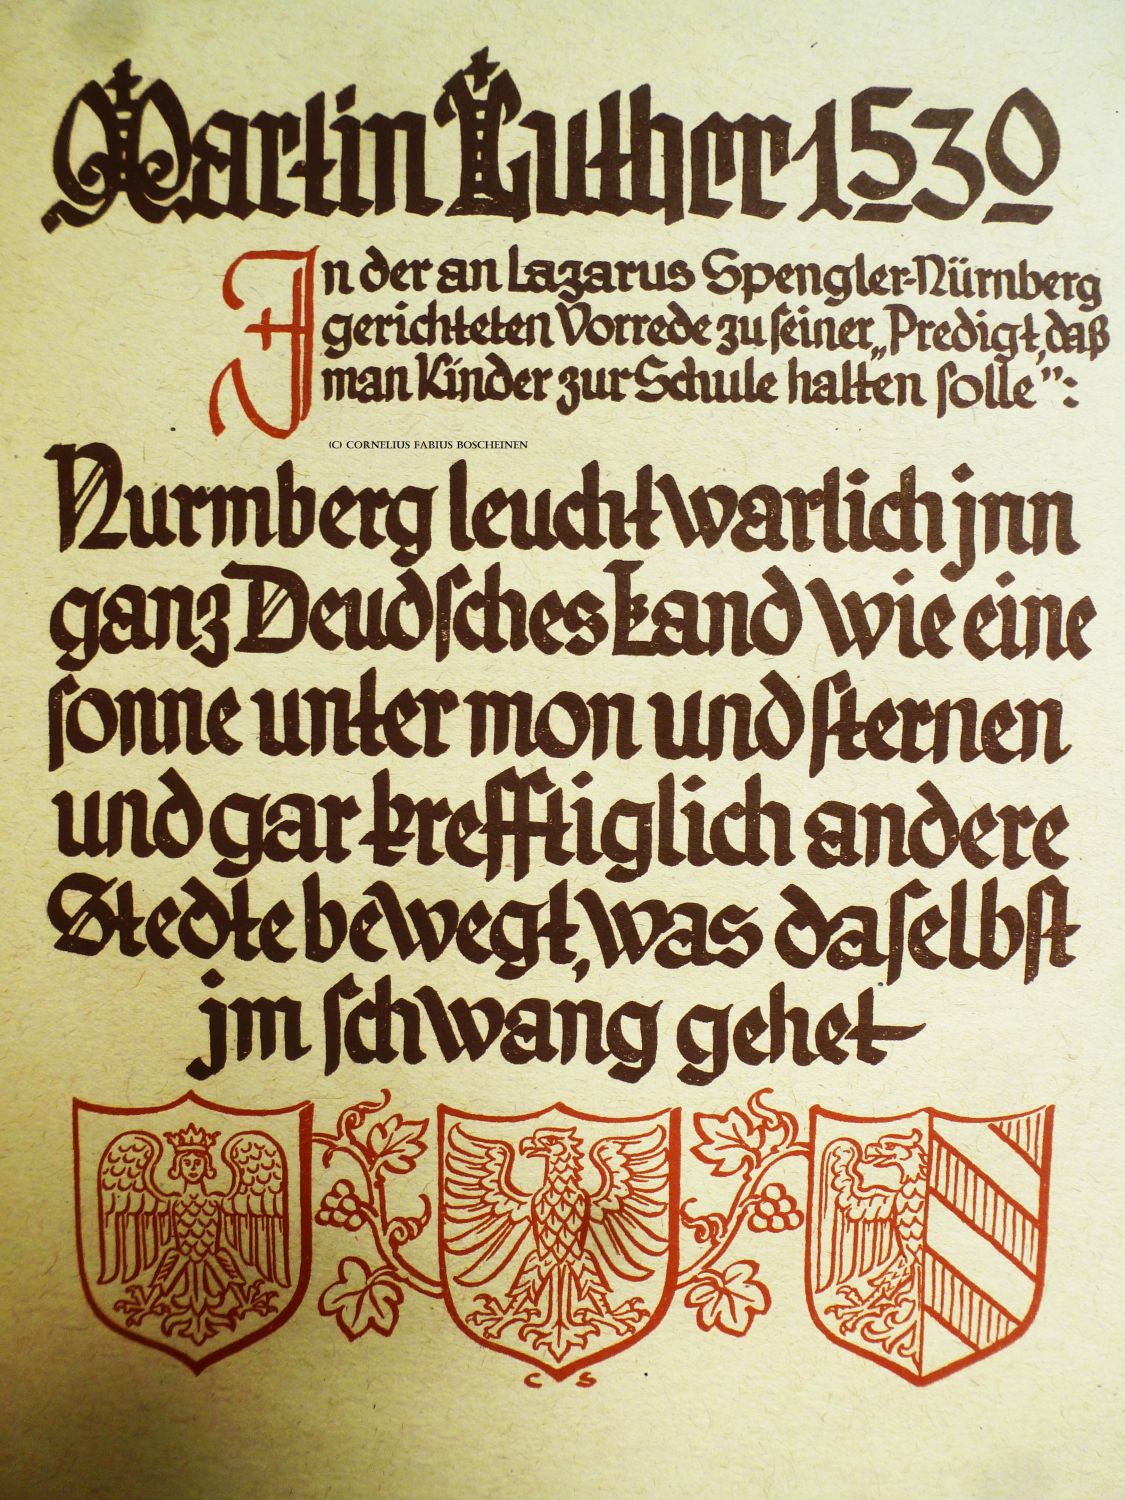 Martin Luther 1530
In der an Lazarus Spengler-Nürnberg
gerichteten Vorrede zu seiner „Predigt, daß
man Kinder zur Schule halten solle”:
(C) CORNELIUS FABIUS BOSCHEINEN
Nurmberg leucht warlich jnn
ganz Deudsches Land wie eine
sonne unter mon und sternen
und gar krefftiglich andere
Stedte bewegt, was daselbst
jm schwang gehet
C S